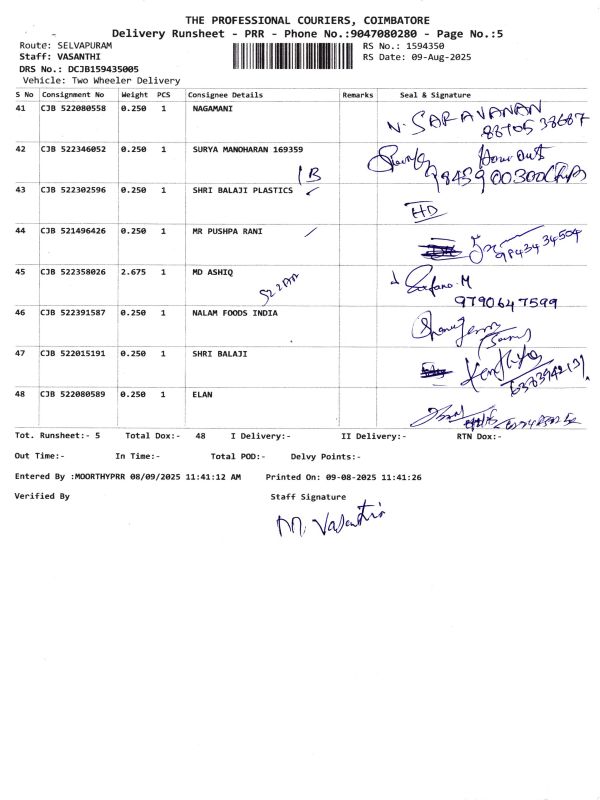 THE PROFESSIONAL COURIERS, COIMBATORE
Delivery Runsheet - PRR - Phone No.:9047080280 - Page No.:5
Route: SELVAPURAM RS No.: 1594350
Staff: VASANTHI RS Date: 09-Aug-2025
DRS No.: DCJB159435005
Vehicle: Two Wheeler Delivery
S No Consignment No Weight PCS Consignee Details Remarks Seal & Signature
41 CJB 522080558 0.250 1 NAGAMANI
N. SARAVANAN
42 CJB 522346052 0.250 1 SURYA MANOHARAN 169359
43 CJB 522302596 0.250 1 SHRI BALAJI PLASTICS
HD
44 CJB 521496426 0.250 1 MR PUSHPA RANI
9843434504
45 CJB 522358026 2.675 1 MD ASHIQ
9790647599
46 CJB 522391587 0.250 1 NALAM FOODS INDIA
47 CJB 522015191 0.250 1 SHRI BALAJI
48 CJB 522080589 0.250 1 ELAN
Tot. Runsheet:- 5 Total Dox:- 48 I Delivery:- II Delivery:- RTN Dox:-
Out Time:- In Time:- Total POD:- Delvy Points:-
Entered By :MOORTHYPRR 08/09/2025 11:41:12 AM Printed On: 09-08-2025 11:41:26
Verified By Staff Signature
M. Vasanthi